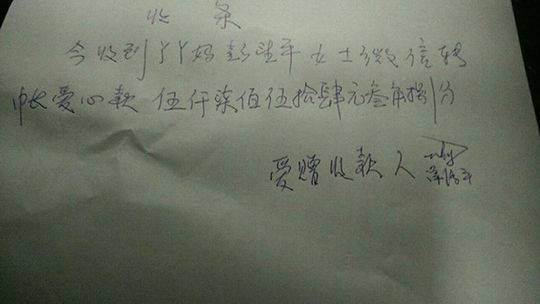 收 条
今收到丫丫妈 女士微信转
帐爱心款 伍仟柒佰伍拾肆元叁角捌分
受赠收款人